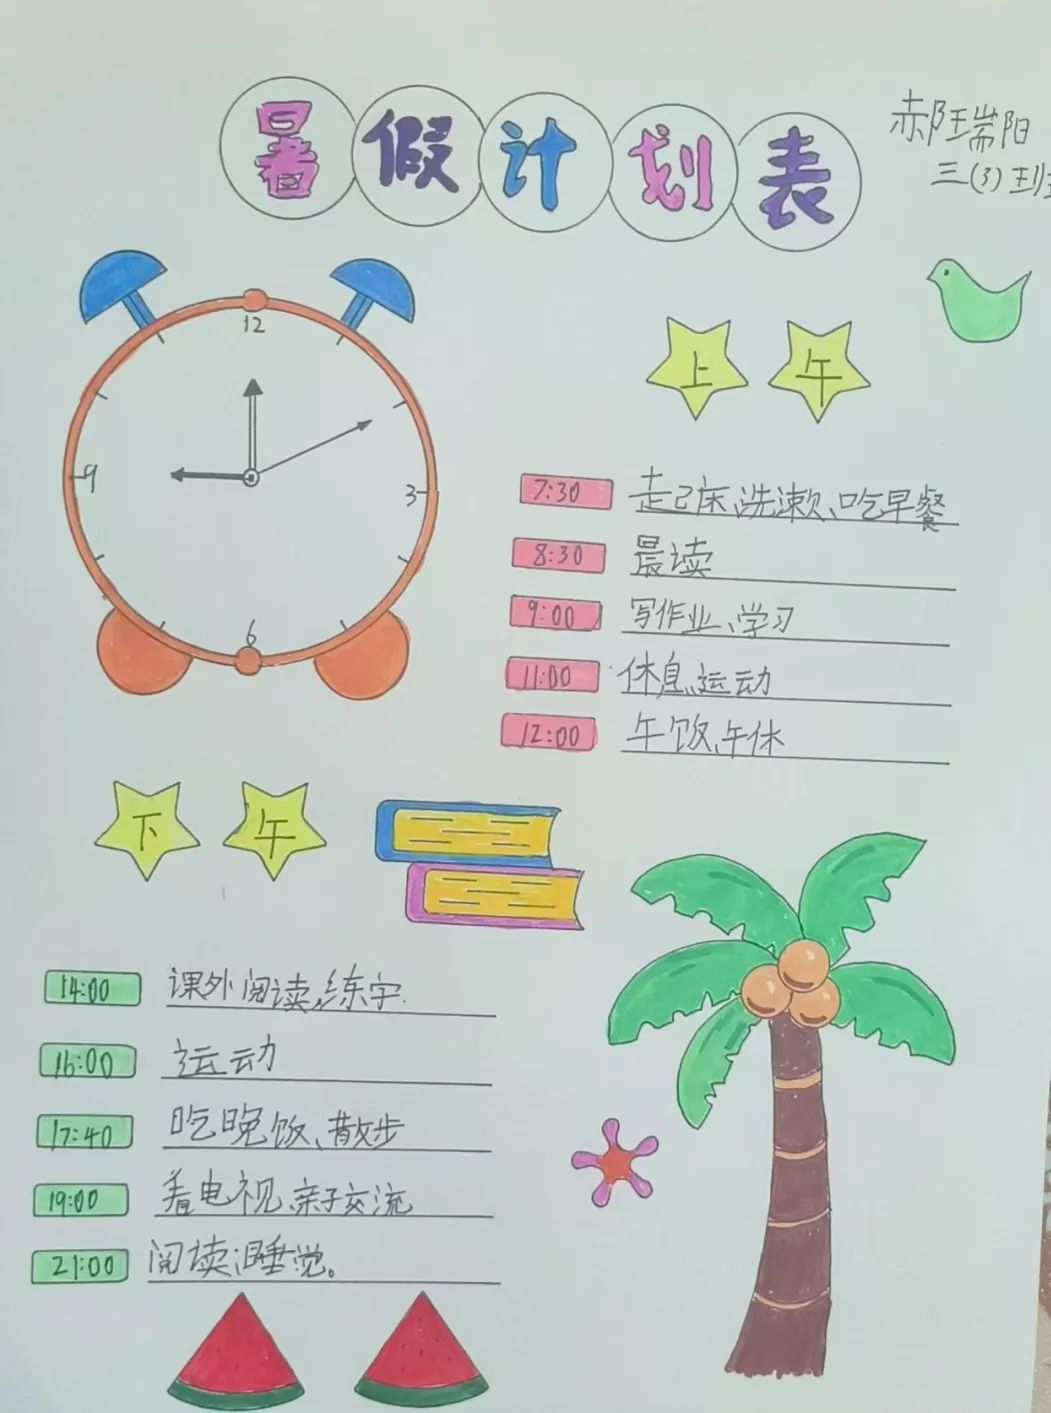 暑假计划表
郝瑞阳
三(3)班
12
9
3
6
上午
7:30 起床、洗漱、吃早餐
8:30 晨读
9:00 写作业、学习
11:00 休息、运动
12:00 午饭、午休
下午
14:00 课外阅读、练字.
16:00 运动
17:40 吃晚饭、散步
19:00 看电视、亲子交流
21:00 阅读、睡觉。